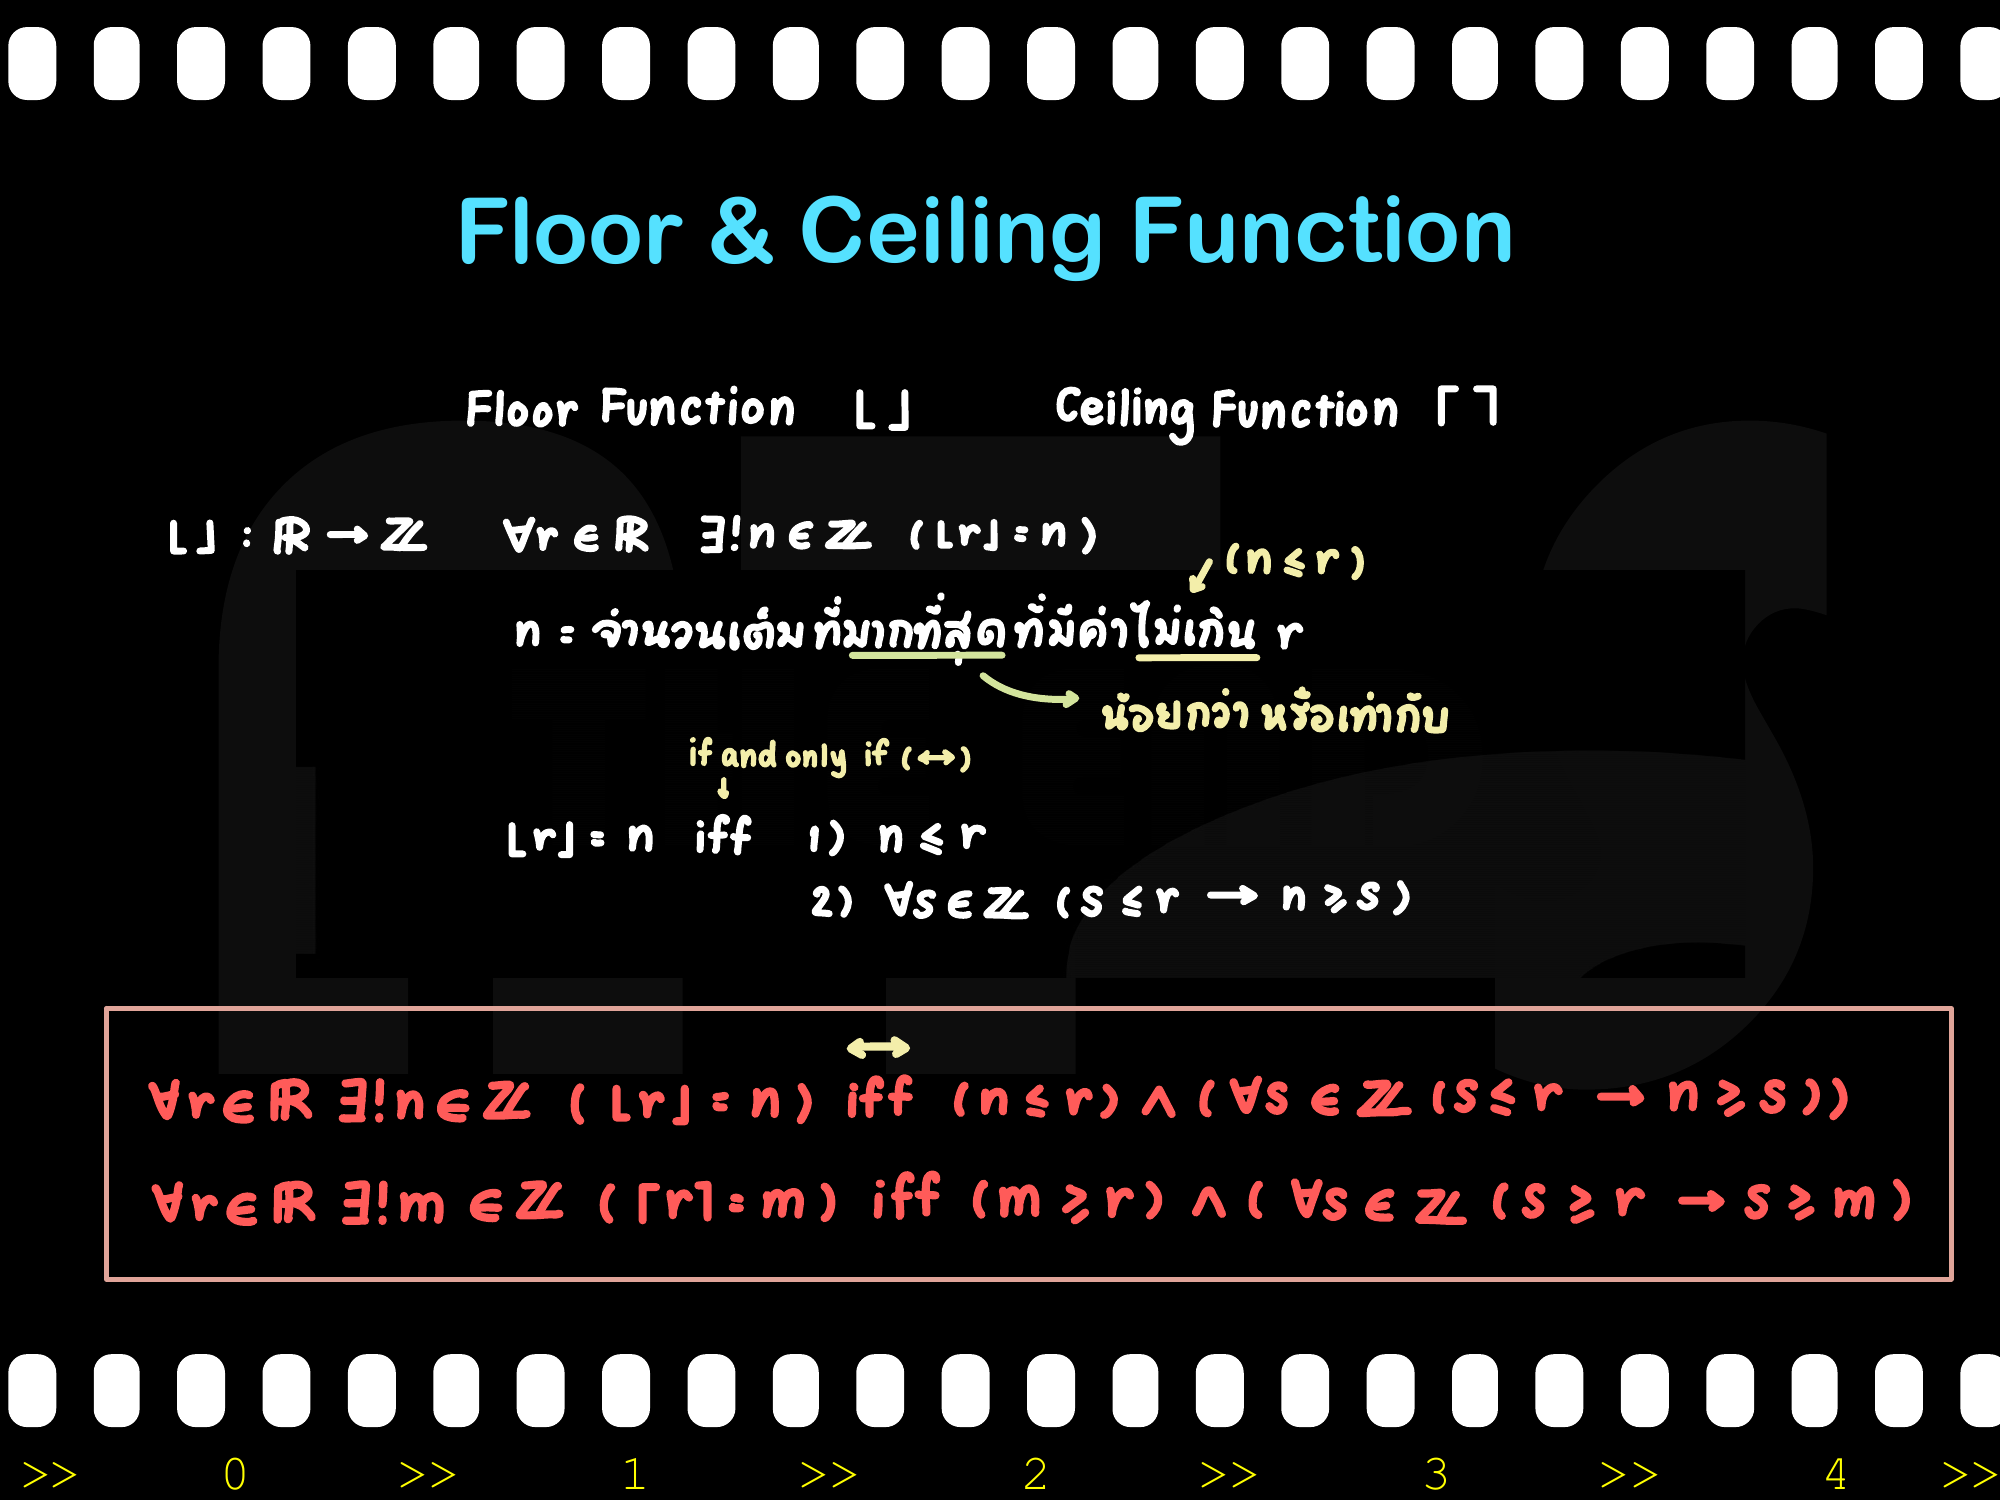 Floor & Ceiling Function
Floor Function ⌊ ⌋ Ceiling Function ⌈ ⌉
⌊ ⌋ : ℝ → ℤ ∀r ∈ ℝ ∃!n ∈ ℤ (⌊r⌋ = n)
(n ≤ r)
n = จำนวนเต็ม ที่มากที่สุด ที่มีค่าไม่เกิน r
น้อยกว่า หรือเท่ากับ
if and only if (↔)
↓
⌊r⌋ = n iff 1) n ≤ r
2) ∀s ∈ ℤ (s ≤ r → n ≥ s)
↔
∀r ∈ ℝ ∃!n ∈ ℤ (⌊r⌋ = n) iff (n ≤ r) ∧ (∀s ∈ ℤ (s ≤ r → n ≥ s))
∀r ∈ ℝ ∃!m ∈ ℤ (⌈r⌉ = m) iff (m ≥ r) ∧ (∀s ∈ ℤ (s ≥ r → s ≥ m)
>> 0 >> 1 >> 2 >> 3 >> 4 >>